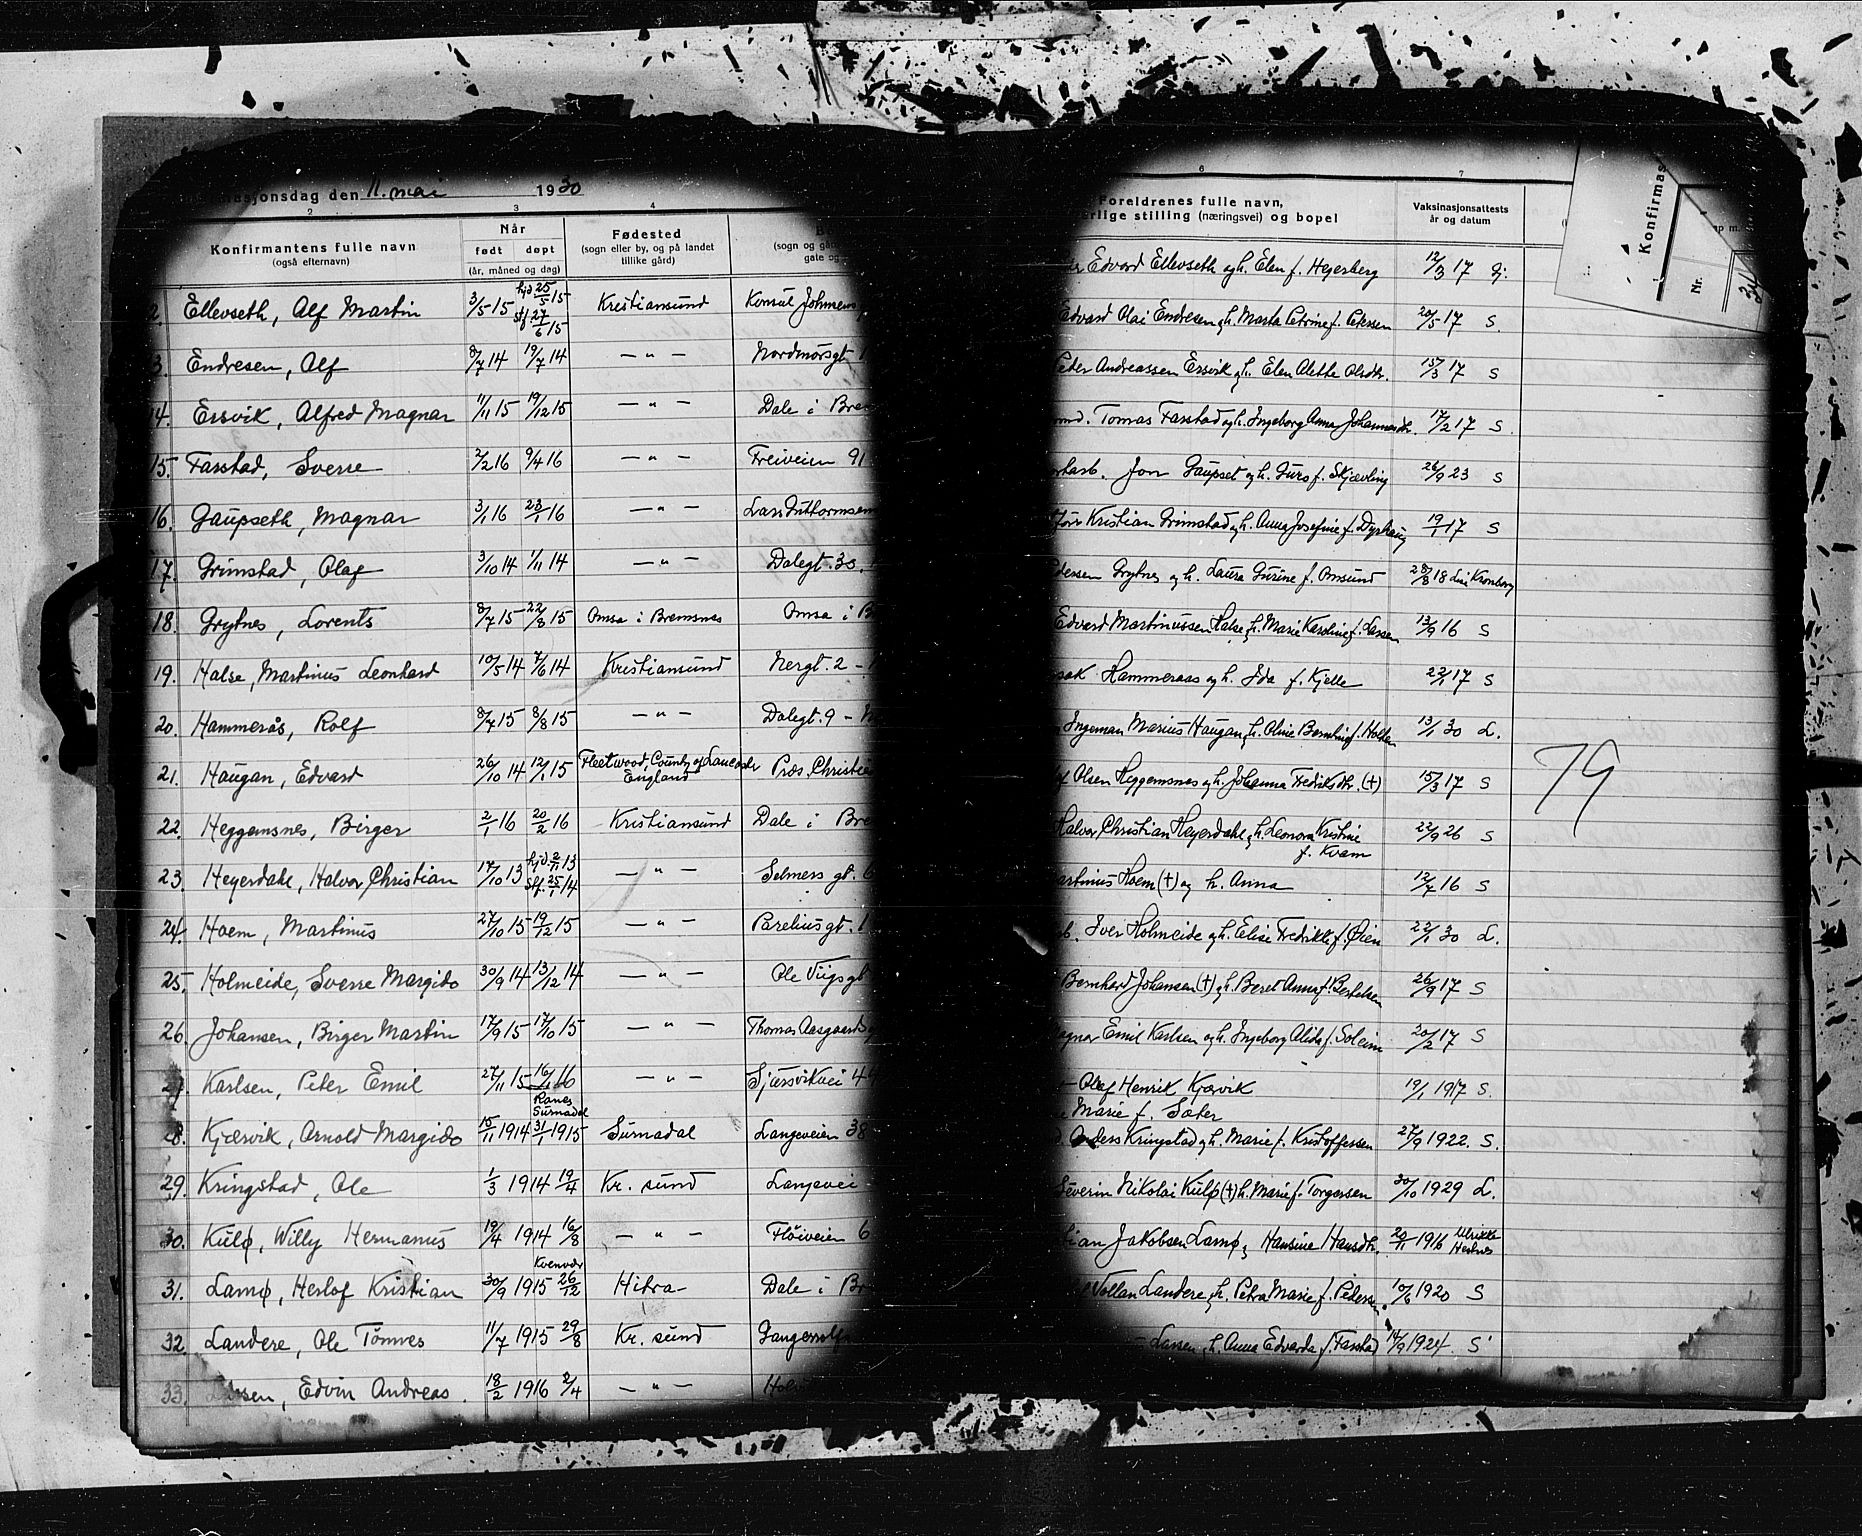 asjonsdag den 11. mai 1930
2 3 4
Konfirmantens fulle navn
(også efternavn)
Når
født døpt
(år, måned og dag)
Fødested
(sogn eller by, og på landet
tillike gård)
(sogn og
gate og
2. Ellevseth, Alf Martin 3/5 15 hjd 25/5 15 stf. 27/6 15 Kristiansund Konsul Johnsens
3. Endresen, Alf 8/7 14 19/7 14 — " — Nordmørsgt
14. Ersvik, Alfred Magnar 11/11 15 19/12 15 — " — Dale i Bre
15. Farstad, Sverre 2/2 16 9/4 16 — " — Freiveien 91
16. Gaupseth, Magnar 3/1 16 23/1 16 — " — Lars Guttormsen
17. Grimstad, Olaf 3/10 14 1/11 14 — " — Dalegt. 30.
18. Grytnes, Lorents 8/7 15 22/8 15 Omsa i Bremsnes Omsa i B
19. Halse, Martinus Leonhard 10/5 14 7/6 14 Kristiansund Nergt. 2 -
20. Hammerås, Rolf 8/7 15 8/8 15 — " — Dalegt. 9 -
21. Haugan, Edvard 26/10 14 12/1 15 Fleetwood, County of Lancaster England Præs. Christie
22. Heggemsnes, Birger 2/1 16 20/2 16 Kristiansund Dale i Bre
23. Heyerdahl, Halvor Christian 17/10 13 hjd. 2/11 13 Stf. 25/1 14 — " — Selmers gt. 6
24. Hoem, Martinus 27/10 15 19/12 15 — " — Pareliusgt. 1
25. Holmeide, Sverre Margido 30/9 14 13/12 14 — " — Ole Viigsgt
26. Johansen, Birger Martin 17/9 15 17/10 15 — " — Thomas Aasgaards
27. Karlsen, Peter Emil 27/11 15 16/1 16 — " — Sjursvikvei 44
28. Kjærsvik, Arnold Margido 15/11 1914 Ranes Surnadal 31/1 1915 Surnadal Langveien 38
29. Kringstad, Ole 1/3 1914 19/4 Kr. sund Langvei
30. Kulø, Willy Hermanus 19/4 1914 16/8 — " — Fløiveien 6
31. Lamø, Herlof Kristian 30/9 1915 Kvenvær 26/12 Hitra Dale i Br
32. Landere, Ole Tønnes 11/7 1915 29/8 Kr. sund Gangerrolfs
33. Larsen, Edvin Andreas. 18/2 1916 2/4 — " — Hol
6 7
Foreldrenes fulle navn,
erlige stilling (næringsvei) og bopel
Vaksinasjonsattests
år og datum
Edvard Ellevseth og h. Elen f. Hegerberg 12/3 17 G.
Edvard Olai Endresen og h. Marta Petrine f. Petersen 20/5 17 S.
Peter Andreassen Ersvik og h. Elen Alette Olsdtr. 15/3 17 S
Tomas Farstad og h. Ingeborg Anna Johannesdtr. 17/2 17 S.
Jon Gaupset og h. Guro f. Skjævling 26/9 23 S
Kristian Grimstad og h. Anna Josefine f. Dyrhaug 19/1 17 S
edersen Grytnes og h. Laura Gurine f. Omsund 28/8 18 Lini Kronborg
Edvard Martinussen Halse og h. Marie Karoline f. Larsen 13/9 16 S
sak Hammeraas og h. Ida f. Kjelle 22/1 17 S
Ingeman Marius Haugan og h. Oline Berntine f. Holten 13/1 30 L.
Olsen Heggemsnes og h. Johanna Fredriksdtr. (†) 15/3 17 S
Halvor Christian Heyerdahl og h. Leonora Kristine f. Kvam 22/9 26 S
artinus Hoem (†) og h. Anna 12/7 16 S
Iver Holmeide og h. Elise Fredrikke f. Øien 22/1 30 L.
Bernhard Johansen (†) og h. Beret Anna f. Bertelsen 26/9 17 S
agnar Emil Karlsen og h. Ingeborg Alida f. Soleim 20/2 17 S
Olaf Henrik Kjærvik
Marie f. Sæter 19/1 1917 S.
Anders Kringstad og h. Marie f. Kristoffersen 27/9 1922. S.
Severin Nikolai Kulø (†) h. Marie f. Torgersen 30/10 1929 L.
tian Jakobsen Lamø og Hansine Hansdtr. 20/11 1916 Ulrikke Hestnes
Vollan Landere og h. Petra Marie f. Pedersen. 10/6 1920 S
Larsen og h. Anna Edvarda f. Farstad 14/9 1924. S
79
Konfirmas
Nr.